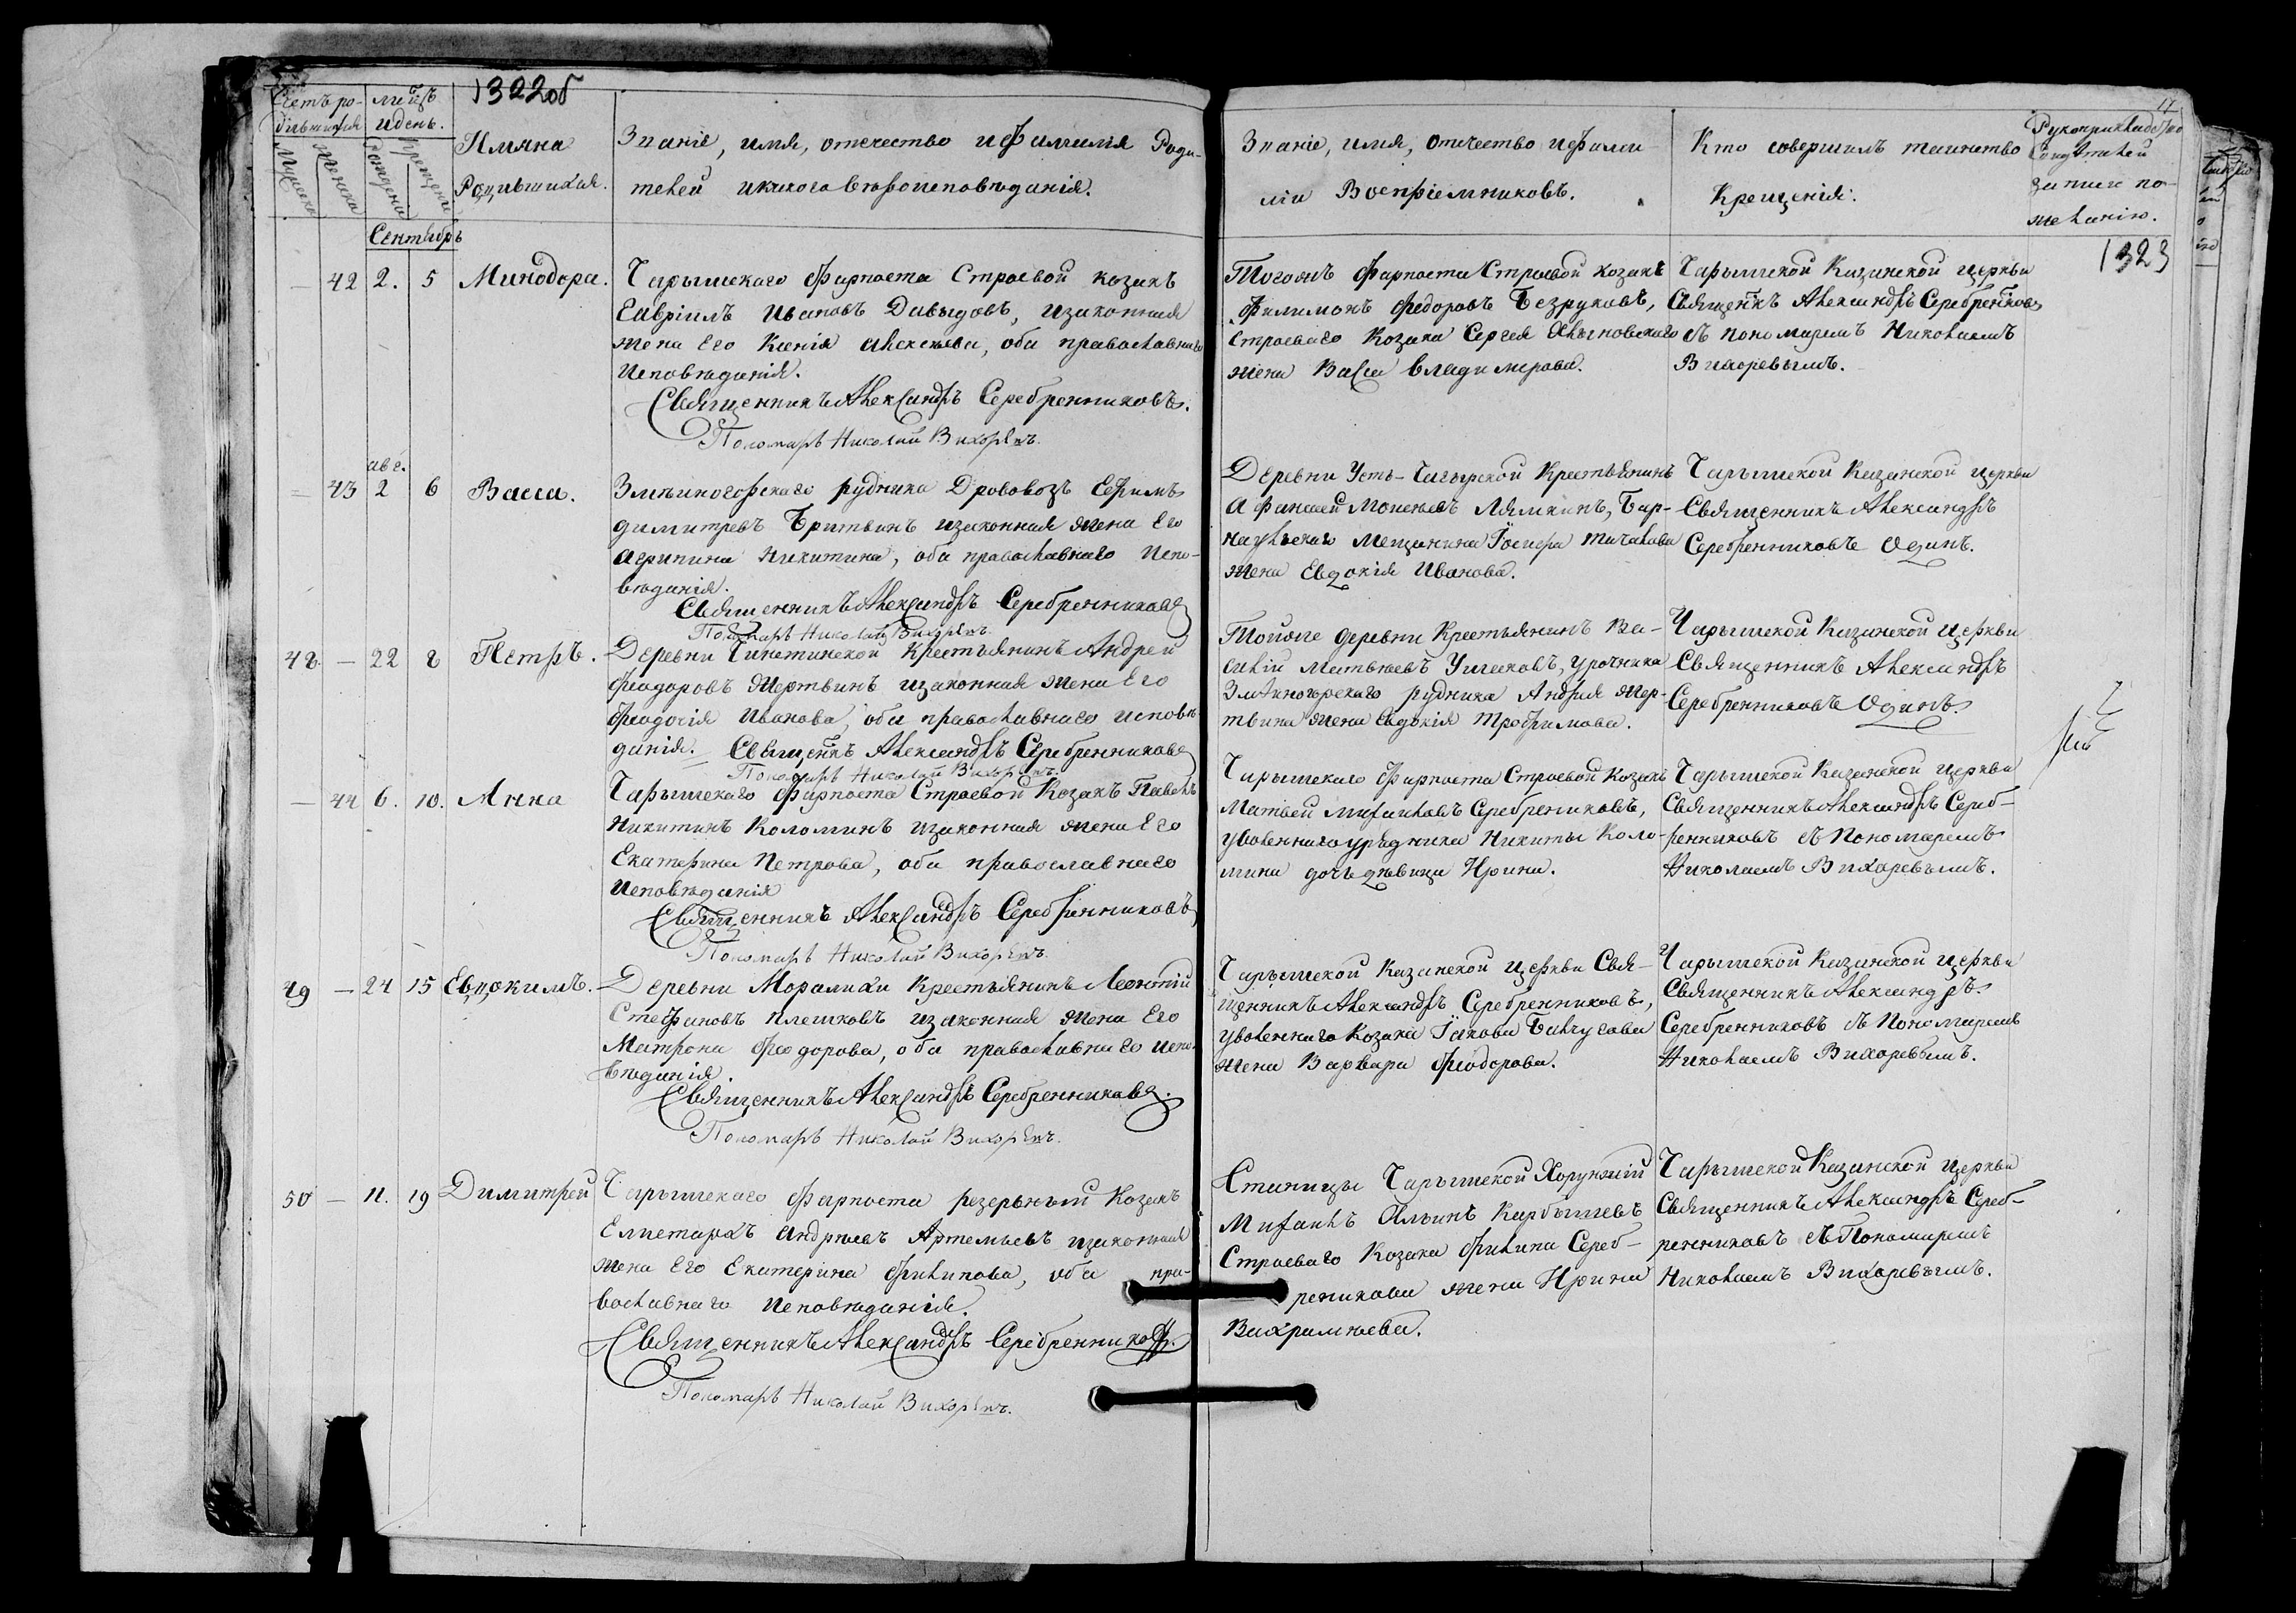 1322об
Счетъ ро-
дившихся
мѣцъ
и день.
Мужеска
Женска
рожденія
крещенія
Имяна
Родившихся.
Званіе, имя, отечество и фамилія Роди-
телей и какого вѣроисповѣданія.
Сентябрь
— 42 2. 5 Минодора.
Чарышскаго форпоста Строевой козакъ
Гавріилъ Ивановъ Давыдовъ, и законная
жена его Ксенія Алексѣева, оба православнаго
исповѣданія.
Священникъ Александръ Серебренниковъ.
Пономарь Николай Вихоревъ.
авг.
— 43 2 6 Васса.
Змѣиногорскаго рудника Дрововозъ Ефимъ
Димитревъ Бритвинъ и законная жена его
Агрипина Никитина, оба православнаго испо-
вѣданія.
Священникъ Александръ Серебренниковъ
Пономарь Николай Вихоревъ.
48 — 22 8 Петръ.
Деревни Чинетинской крестьянинъ Андрей
Феодоровъ Жертвинъ и законная жена его
Феодосія Иванова, оба православнаго исповѣ
данія. Священкъ Александръ Серебренниковъ
Пономарь Николай Вихоревъ.
— 44 6. 10. Анна
Чарышскаго Форпоста Строевой Козакъ Павелъ
Никитинъ Коломинъ и законная жена его
Екатерина Петрова, оба православнаго
исповѣданія
Священникъ Александръ Серебренниковъ
Пономарь Николай Вихоревъ.
49 — 24 15 Евдокимъ.
Деревни Моралихи Крестьянинъ Леонтій
Стефановъ Плешковъ и законная жена его
Матрона Феодорова, оба православнаго испо-
вѣданія.
Священникъ Александръ Серебренниковъ.
Пономарь Николай Вихоревъ.
50 — 11. 19 Димитрей
Чарышскаго форпоста резервный Козакъ
Елистархъ Андреевъ Артемьевъ и законная
жена его Екатерина Филипова, оба пра-
вославнаго исповѣданія.
Священникъ Александръ Серебренниковъ.
Пономарь Николай Вихоревъ.
17
Званіе, имя, отчество и фами
ліи Воспріемниковъ.
Кто совершилъ таинство
Крещенія:
Рукоприкладство
Свидѣтелей
записи по
желанію.
1323
Тогожъ форпоста Строевой козакъ
Филимонъ Федоровъ Безруковъ,
Строеваго Козака Сергея
жена Васса Владимерова.
Чарышской Казанской церкви
Священкъ Александръ Серебренниковъ
съ пономаремъ Николаемъ
Вихоревымъ.
Деревни Усть-Чагырской Крестьянинъ
Афанасей Моисеевъ Лямкинъ, Бар-
наульскаго мещанина Іосифа Токачева
жена Евдокія Иванова.
Чарышской Казанской церкви
Священникъ Александръ
Серебренниковъ Одинъ.
Тойже деревни Крестьянинъ Ва-
силій Матвѣевъ Ушаковъ, урочника
Змѣиногорскаго рудника Андрея Жер-
твина жена Евдокія Трофимова.
Чарышской Казанской Церкви
Священникъ Александръ
Серебренниковъ Одинъ.
Чарышскаго Форпоста Строевой Козакъ
Матвей Михаиловъ Серебрениковъ,
уволеннаго урядника Никиты Коло-
мина дочь дѣвица Ирина.
Чарышской Казанской церкви
Священникъ Александръ Сереб-
ренниковъ съ Пономаремъ
Николаемъ Вихоревымъ.
Чарышской Казанской церкви Свя-
щенникъ Александръ Серебренниковъ,
уволеннаго Козака Іакова
жена Варвара Феодорова.
Чарышской Казанской церкви
Священникъ Александръ
Серебренниковъ съ Пономаремъ
Николаемъ Вихоревымъ.
Станицы Чарышской Хорунжій
Михаилъ Ильинъ Карбышевъ
Строеваго Козака Филипа Сереб-
реникова жена Ирина
Вахрамѣева.
Чарышской Казанской Церкви
Священникъ Александръ Сереб-
ренниковъ съ Пономаремъ
Николаемъ Вихоревымъ.